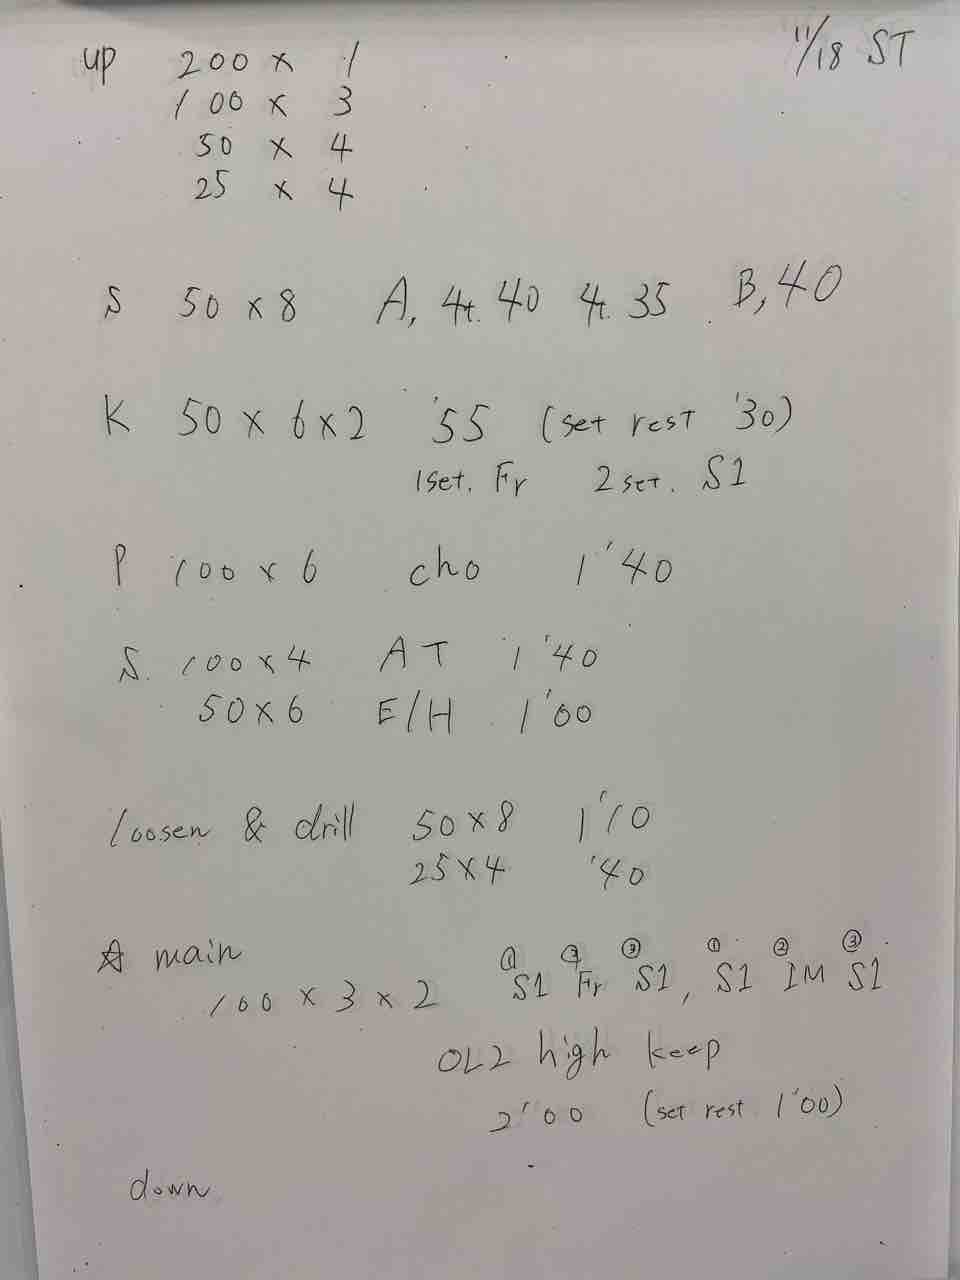 11/18 ST
up 200 × 1
100 × 3
50 × 4
25 × 4
S 50 × 8 A, 4t. 40 4t. 35 B, 40
K 50 × 6 × 2 '55 (set rest '30)
1set. Fr 2set. S1
P 100 × 6 cho 1'40
S. 100 × 4 AT 1'40
50 × 6 E/H 1'00
loosen & drill 50 × 8 1'10
25 × 4 '40
☆ main
① ② ③ ① ② ③
100 × 3 × 2 S1 Fr S1, S1 IM S1
OL2 high keep
2'00 (set rest 1'00)
down